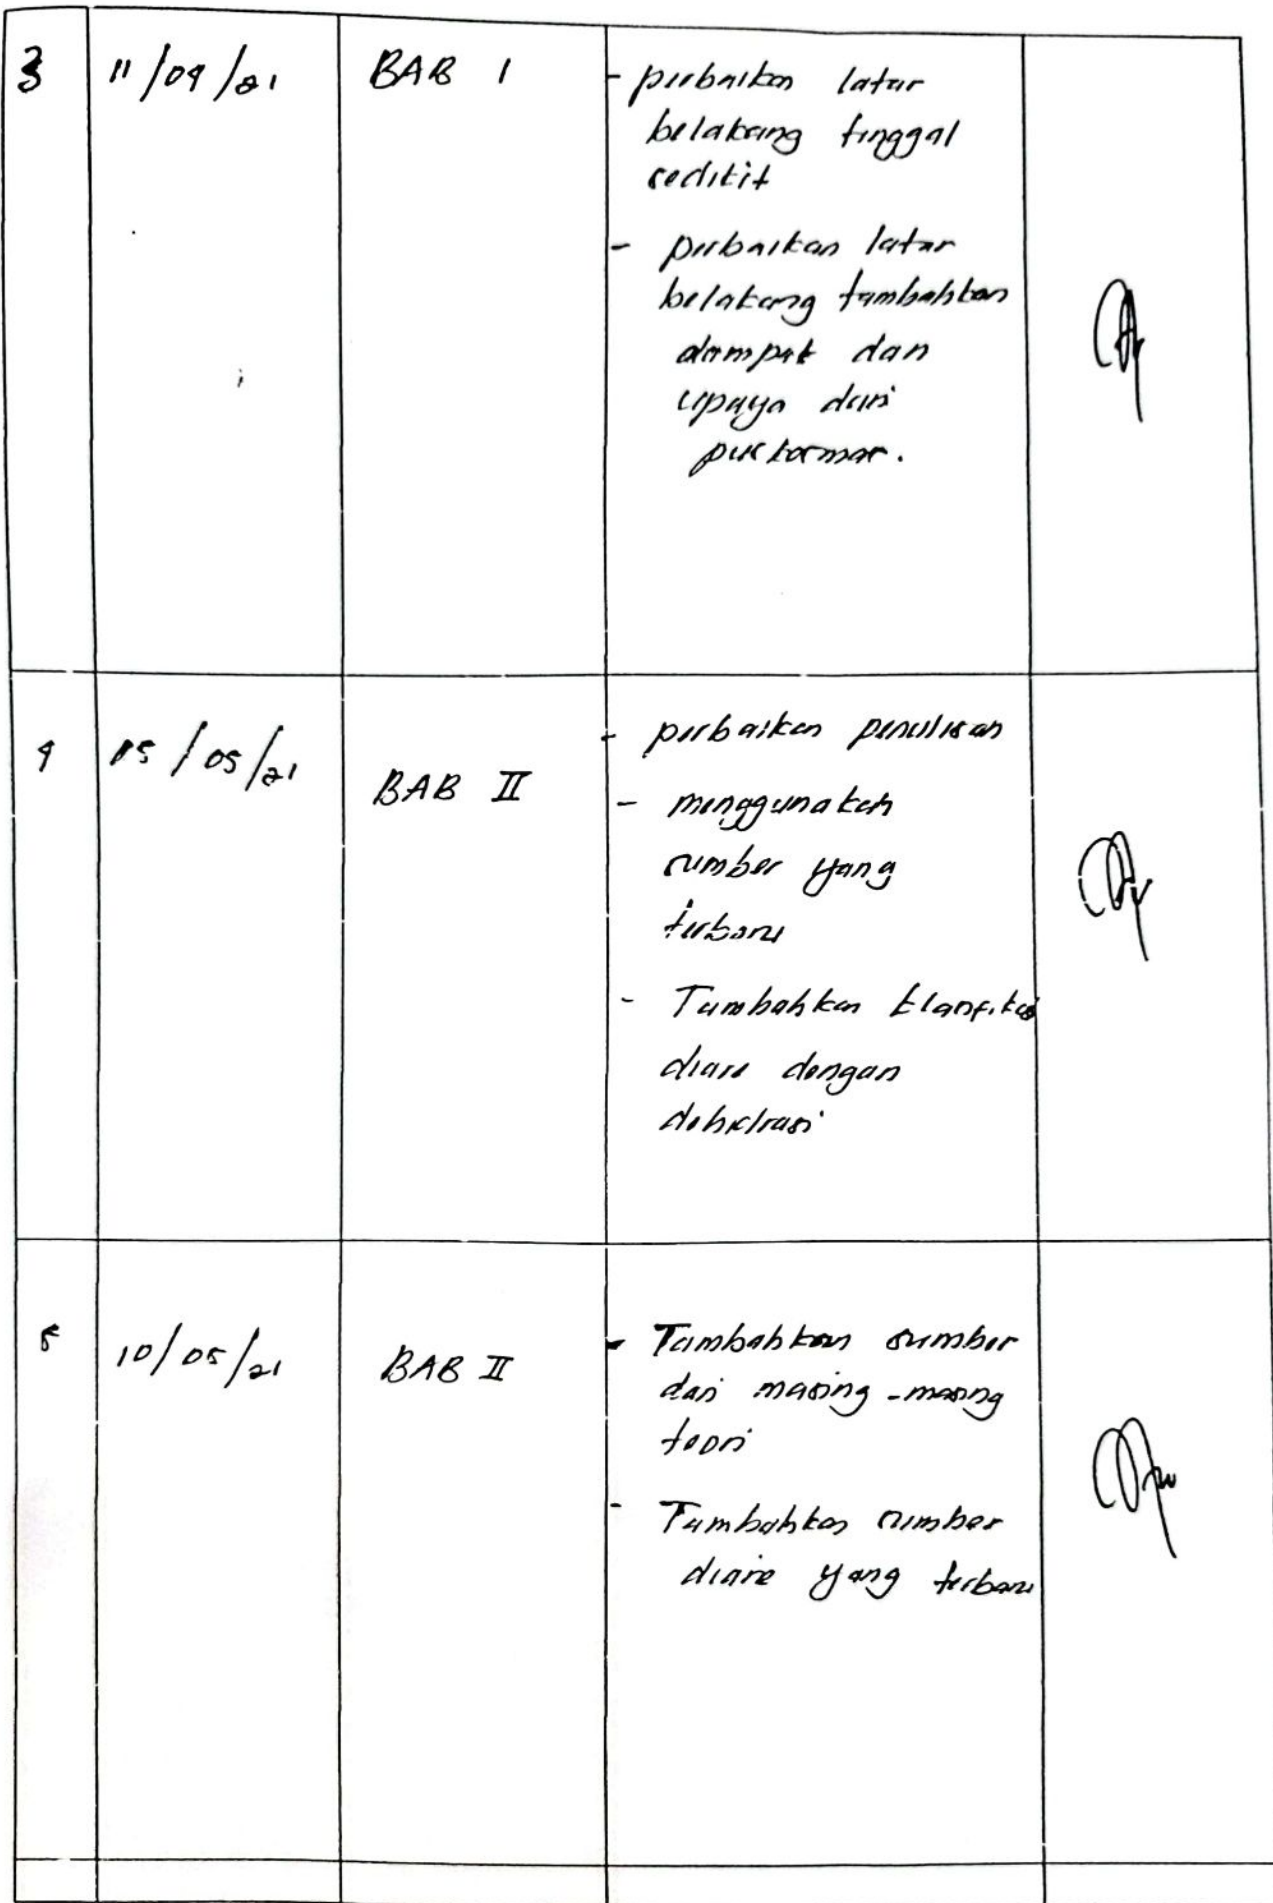 3 11/04/21 BAB I - perbaikan latar
belakang tinggal
sedikit
- perbaikan latar
belakang tambahkan
dampak dan
upaya dari
puskesmas.
4 05/05/21 BAB II - perbaikan penulisan
- menggunakan
sumber yang
terbaru
- Tambahkan klasifikasi
diare dengan
dehidrasi
5 10/05/21 BAB II - Tambahkan sumber
dari masing-masing
teori
- Tambahkan sumber
diare yang terbaru